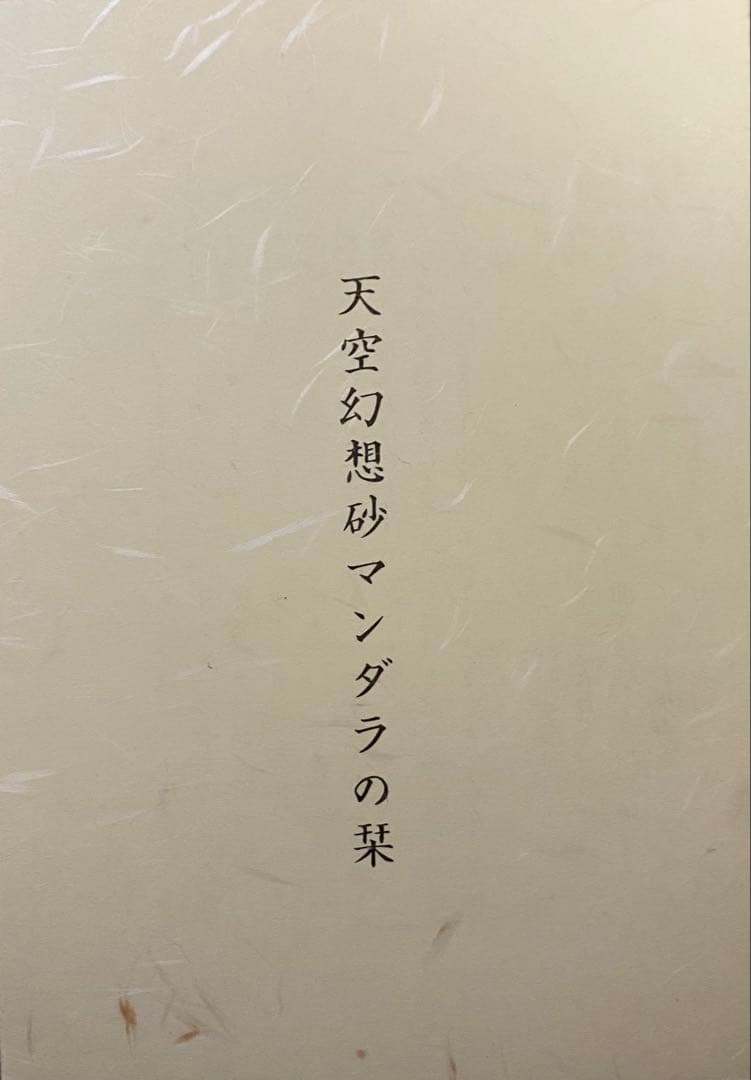 天空幻想砂マンダラの栞